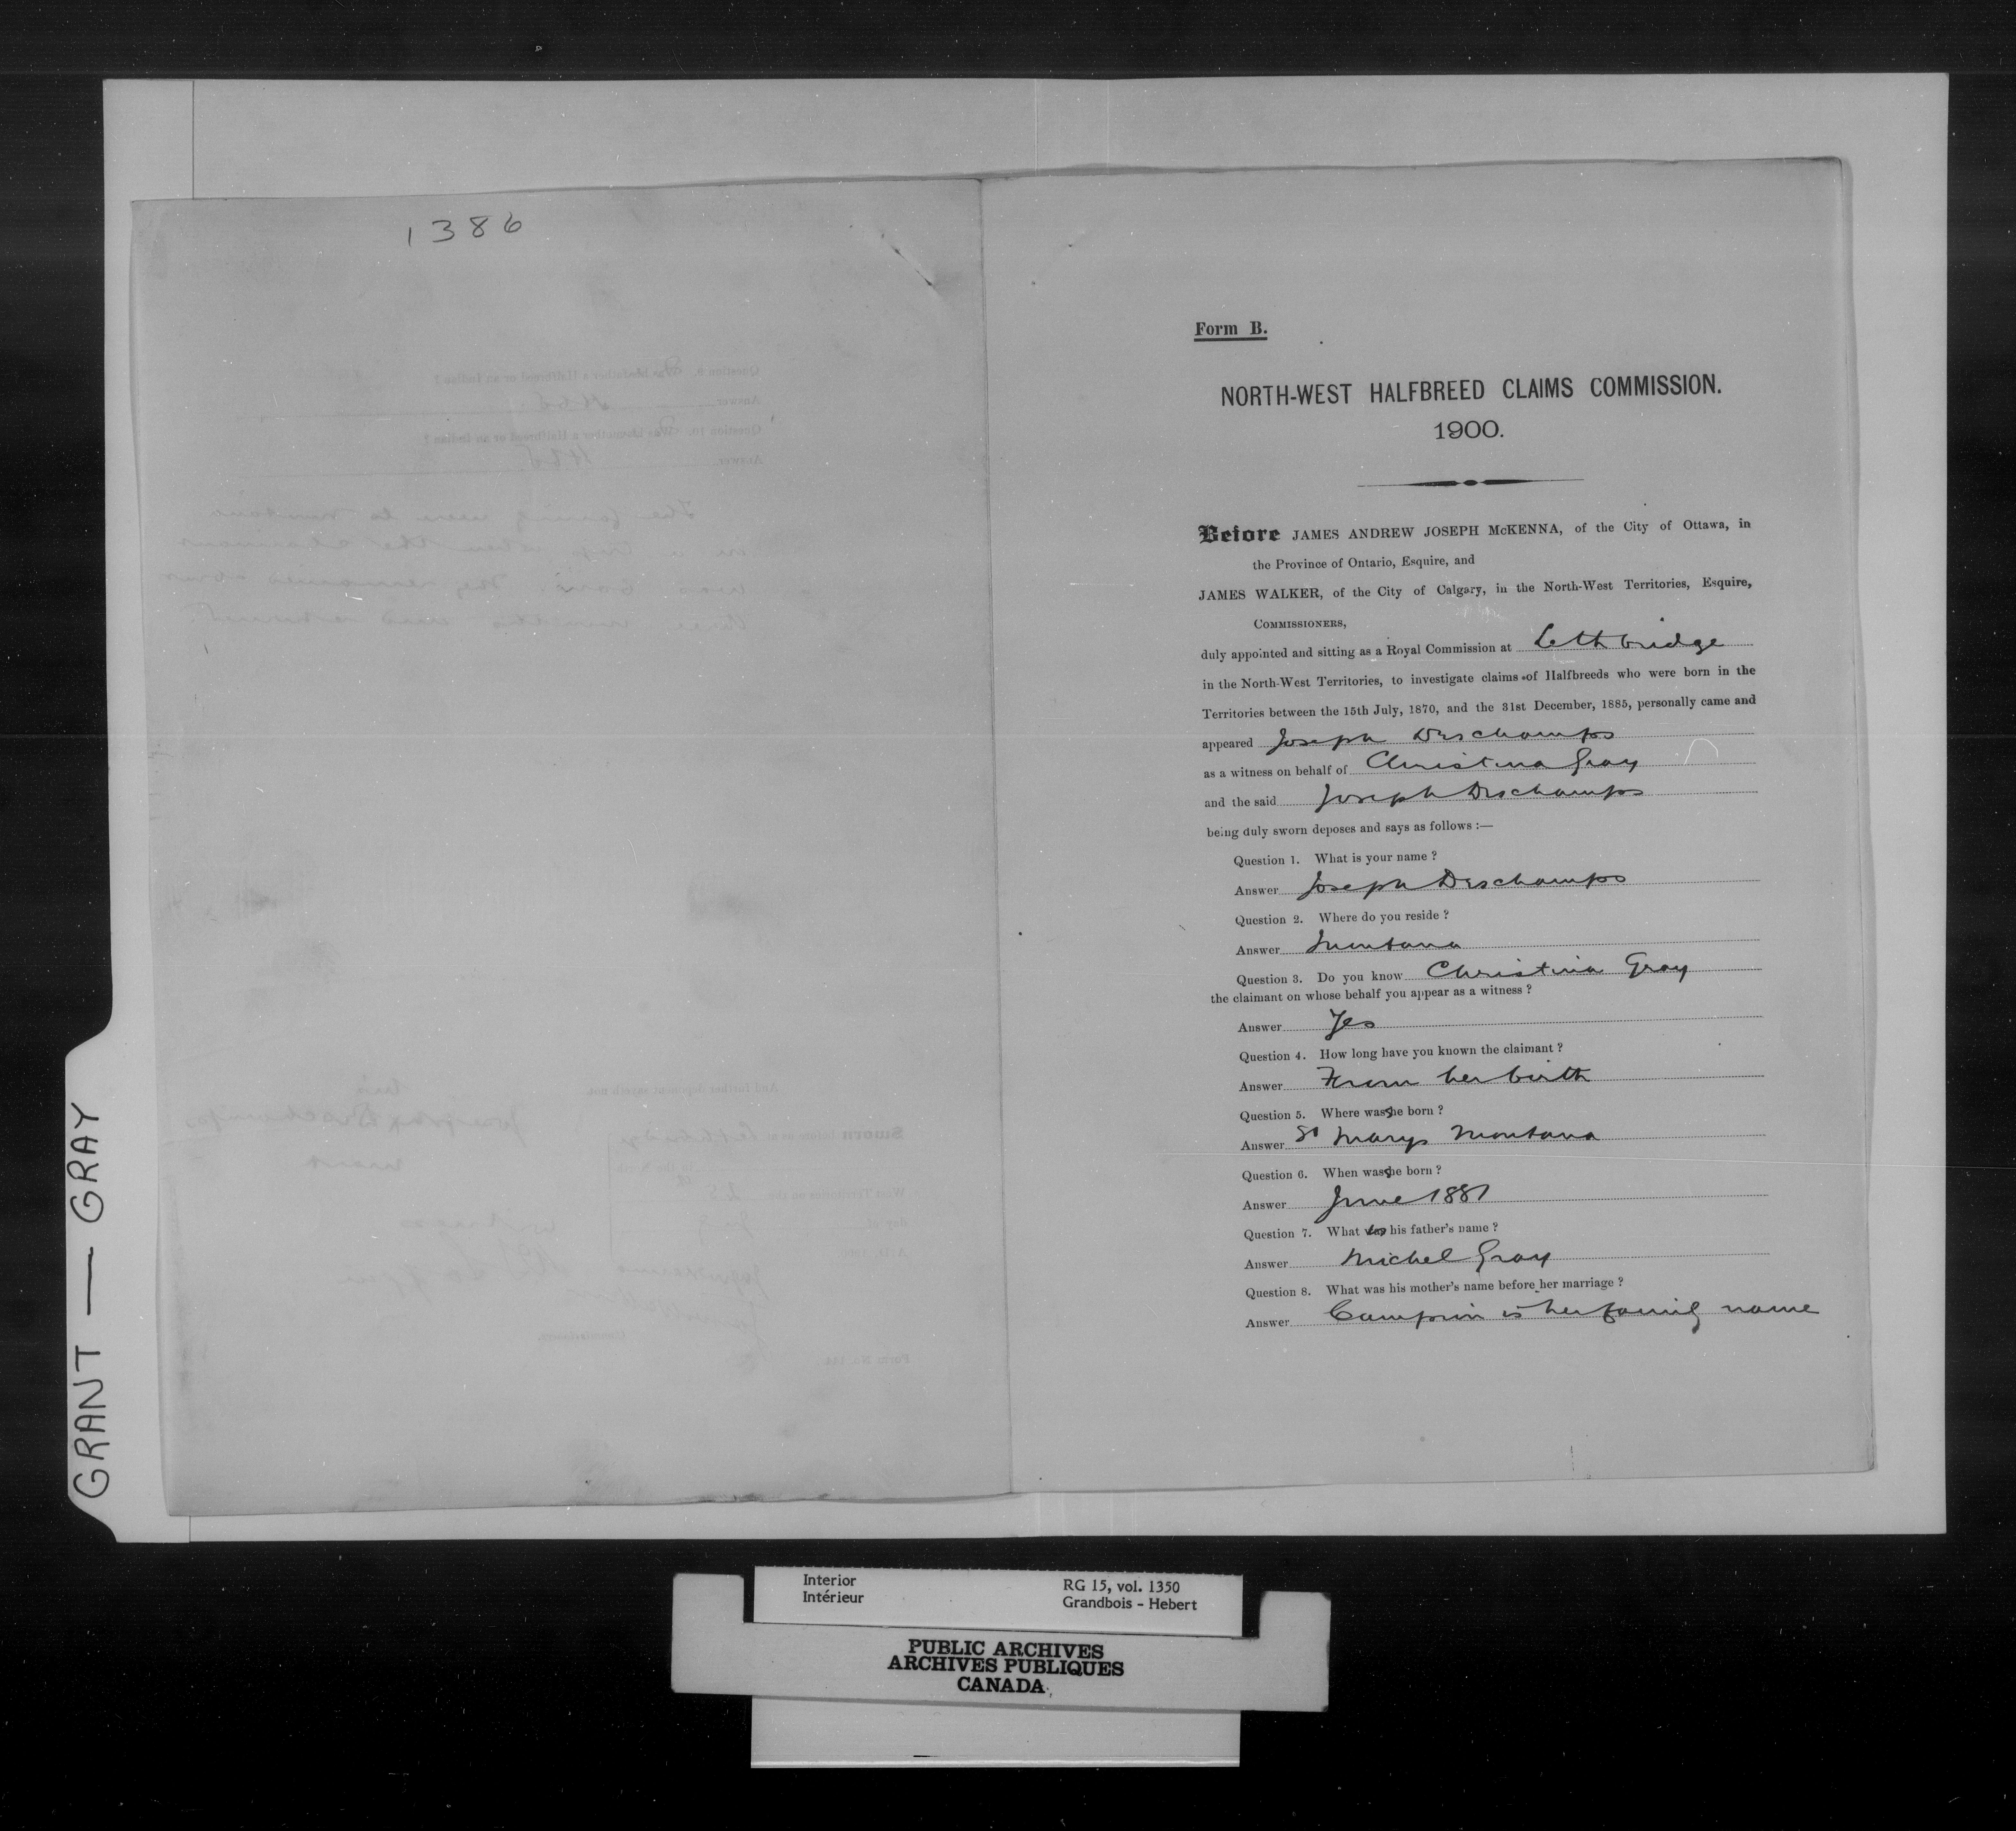 1386
Form B.
NORTH-WEST HALFBREED CLAIMS COMMISSION.
1900.
Before JAMES ANDREW JOSEPH McKENNA, of the City of Ottawa, in
the Province of Ontario, Esquire, and
JAMES WALKER, of the City of Calgary, in the North-West Territories, Esquire,
COMMISSIONERS,
duly appointed and sitting as a Royal Commission at Lethbridge
in the North-West Territories, to investigate claims of Halfbreeds who were born in the
Territories between the 15th July, 1870, and the 31st December, 1885, personally came and
appeared Joseph Deschamps
as a witness on behalf of Christina Gray
and the said Joseph Deschamps
being duly sworn deposes and says as follows :—
Question 1. What is your name ?
Answer Joseph Deschamps
Question 2. Where do you reside ?
Answer Montana
Question 3. Do you know Christina Gray
the claimant on whose behalf you appear as a witness ?
Answer Yes
Question 4. How long have you known the claimant ?
Answer From her birth
Question 5. Where was she born ?
Answer St Marys Montana
Question 6. When was she born ?
Answer June 1881
Question 7. What is his father's name ?
Answer Michel Gray
Question 8. What was his mother's name before her marriage ?
Answer Campion is her family name
GRANT — GRAY
Interior
Intérieur
RG 15, vol. 1350
Grandbois - Hebert
PUBLIC ARCHIVES
ARCHIVES PUBLIQUES
CANADA